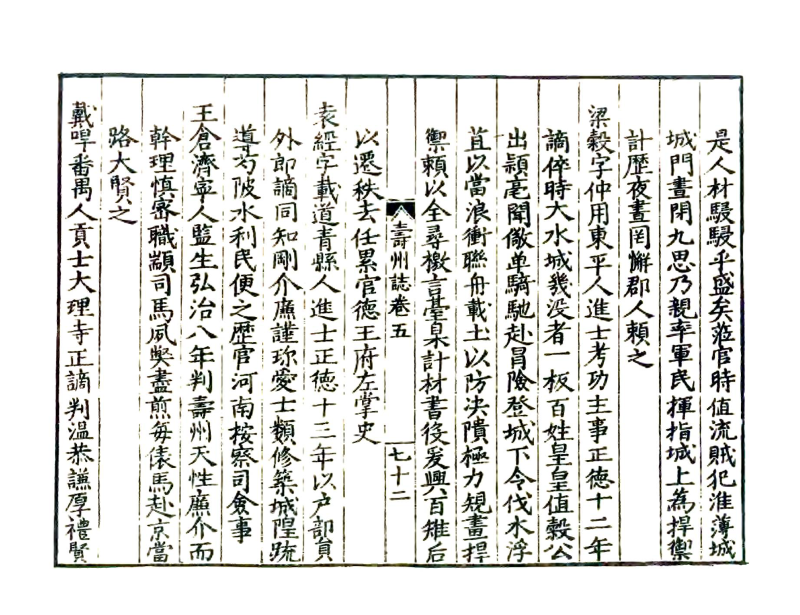 是人材駸駸乎盛矣蒞官時值流賊犯淮薄城
城門晝閉九思乃親率軍民揮指城上為捍禦
計歷夜晝罔懈郡人賴之
梁穀字仲用東平人進士考功主事正德十二年
謫倅時大水城幾没者一板百姓皇皇值穀公
出頴亳聞儆单騎馳赴冐險登城下令伐水浮
苴以當浪衝聯舟載土以防决隤極力規畫捍
禦賴以全尋檄言臺臬計材書役爰興百雉后
以遷秩去任累官德王府左掌史
壽州誌卷五
七十二
袁經字載道青縣人進士正德十三年以户部貟
外郎謫同知剛介廉謹珎愛士類修築城隍䟽
導芍陂水利民便之歴官河南按察司僉事
王倉濟寧人監生弘治八年判壽州天性廉介而
幹理慎密職顓司馬夙獘盡煎每俵馬赴京當
路大賢之
戴㖔番禺人貢士大理寺正謫判温恭謙厚禮賢